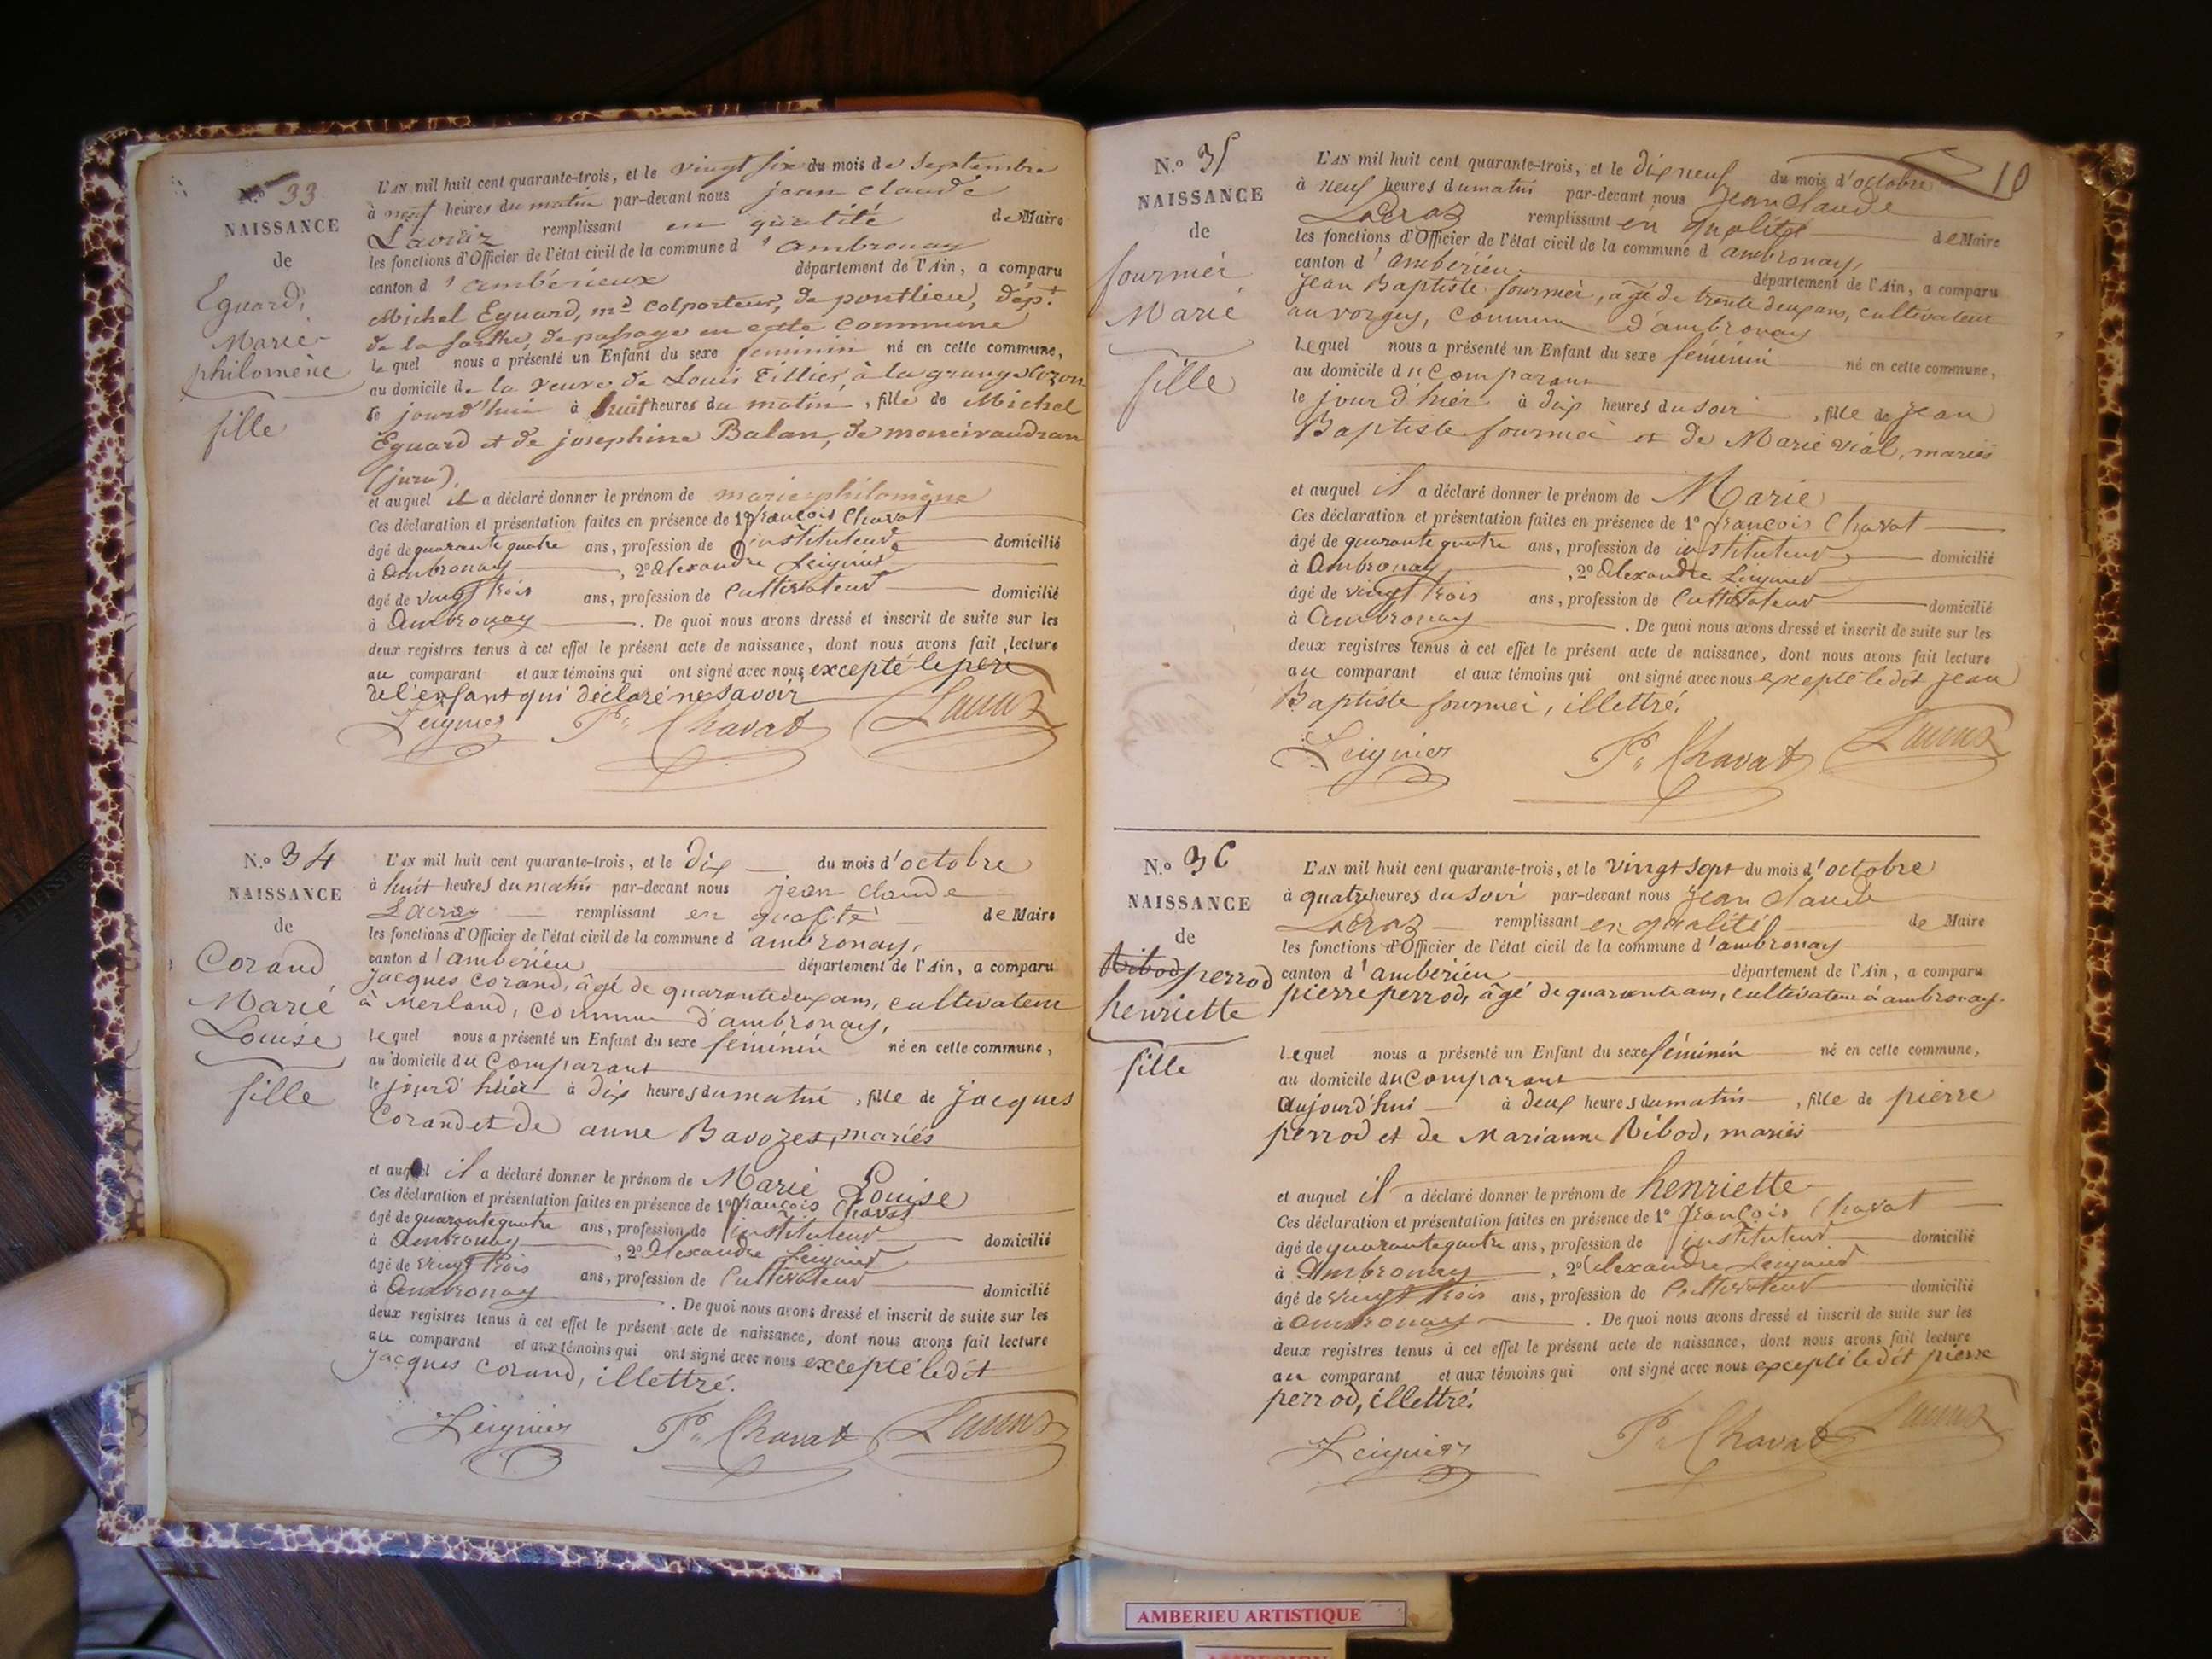 N.o 33
NAISSANCE
de
Eguard,
Marie
philomène
fille
L'AN mil huit cent quarante-trois, et le vingt six du mois de Septembre
à neuf heures du matin par-devant nous jean claude
Lavraz remplissant en qualité de Maire
les fonctions d'Officier de l'état civil de la commune d'ambronay
canton d'ambérieux département de l'Ain, a comparu
Michel Eguard, md colporteur, de pontlieu, dép.t
de la sarthe, de passage en cette commune
le quel nous a présenté un Enfant du sexe feminin né en cette commune,
au domicile de la veuve de Louis Tillier, à la grange
ce jourd'hui à huit heures du matin, fille de Michel
Eguard et de josephine Balan, de
(jura).
et auquel il a déclaré donner le prénom de marie philomène
Ces déclaration et présentation faites en présence de 1o françois Chavat
âgé de quarante quatre ans, profession de instituteur domicilié
à Ambronay, 2o Alexandre Leignier
âgé de vingt trois ans, profession de Cultivateur domicilié
à Ambronay. De quoi nous avons dressé et inscrit de suite sur les
deux registres tenus à cet effet le présent acte de naissance, dont nous avons fait lecture
au comparant et aux témoins qui ont signé avec nous excepté le père
de l'enfant qui déclaré ne savoir
Leignier Fs Chavat Lavraz
N.o 34
NAISSANCE
de
Corand
Marie
Louise
fille
L'AN mil huit cent quarante-trois, et le dix du mois d'octobre
à huit heures du matin par-devant nous jean claude
Lavraz remplissant en qualité de Maire
les fonctions d'Officier de l'état civil de la commune d'ambronay,
canton d'ambérieu département de l'Ain, a comparu
Jacques Corand, âgé de quarante deux ans, cultivateur
à Merland, commune d'ambronay,
le quel nous a présenté un Enfant du sexe féminin né en cette commune,
au domicile du Comparant
le jour d'hier à dix heures du matin, fille de Jacques
Corand et de anne Bavozet, mariés
et auquel il a déclaré donner le prénom de Marie Louise
Ces déclaration et présentation faites en présence de 1o françois Chavat
âgé de quarante quatre ans, profession de instituteur domicilié
à Ambronay, 2o Alexandre Leignier
âgé de vingt trois ans, profession de Cultivateur domicilié
à Ambronay. De quoi nous avons dressé et inscrit de suite sur les
deux registres tenus à cet effet le présent acte de naissance, dont nous avons fait lecture
au comparant et aux témoins qui ont signé avec nous excepté ledit
Jacques Corand, illettré.
Leignier Fs Chavat Lavraz
10
N.o 35
NAISSANCE
de
fournier
Marie
fille
L'AN mil huit cent quarante-trois, et le dix neuf du mois d'octobre
à neuf heures du matin par-devant nous Jean claude
Lavraz remplissant en qualité de Maire
les fonctions d'Officier de l'état civil de la commune d'ambronay,
canton d'ambérieu département de l'Ain, a comparu
Jean Baptiste fournier, âgé de trente deux ans, cultivateur
au vorgey, commune d'ambronay
lequel nous a présenté un Enfant du sexe féminin né en cette commune,
au domicile du Comparant
le jour d'hier à dix heures du soir, fille de Jean
Baptiste fournier et de Marie vial, mariés
et auquel il a déclaré donner le prénom de Marie
Ces déclaration et présentation faites en présence de 1o françois Chavat
âgé de quarante quatre ans, profession de instituteur domicilié
à Ambronay, 2o Alexandre Leignier
âgé de vingt trois ans, profession de Cultivateur domicilié
à Ambronay. De quoi nous avons dressé et inscrit de suite sur les
deux registres tenus à cet effet le présent acte de naissance, dont nous avons fait lecture
au comparant et aux témoins qui ont signé avec nous excepté ledit Jean
Baptiste fournier, illettré.
Leignier Fs Chavat Lavraz
N.o 36
NAISSANCE
de
Ribod perrod
henriette
fille
L'AN mil huit cent quarante-trois, et le vingt sept du mois d'octobre
à quatre heures du soir par-devant nous Jean claude
Lavraz remplissant en qualité de Maire
les fonctions d'Officier de l'état civil de la commune d'ambronay
canton d'ambérieu département de l'Ain, a comparu
pierre perrod, âgé de quarante ans, cultivateur à ambronay.
lequel nous a présenté un Enfant du sexe féminin né en cette commune,
au domicile du Comparant
aujourd'hui à deux heures du matin, fille de pierre
perrod et de Marianne Ribod, mariés
et auquel il a déclaré donner le prénom de henriette
Ces déclaration et présentation faites en présence de 1o François Chavat
âgé de quarante quatre ans, profession de instituteur domicilié
à Ambronay, 2o Alexandre Leignier
âgé de vingt trois ans, profession de Cultivateur domicilié
à Ambronay. De quoi nous avons dressé et inscrit de suite sur les
deux registres tenus à cet effet le présent acte de naissance, dont nous avons fait lecture
au comparant et aux témoins qui ont signé avec nous excepté ledit pierre
perrod, illettré.
Leignier Fs Chavat Lavraz
AMBERIEU ARTISTIQUE